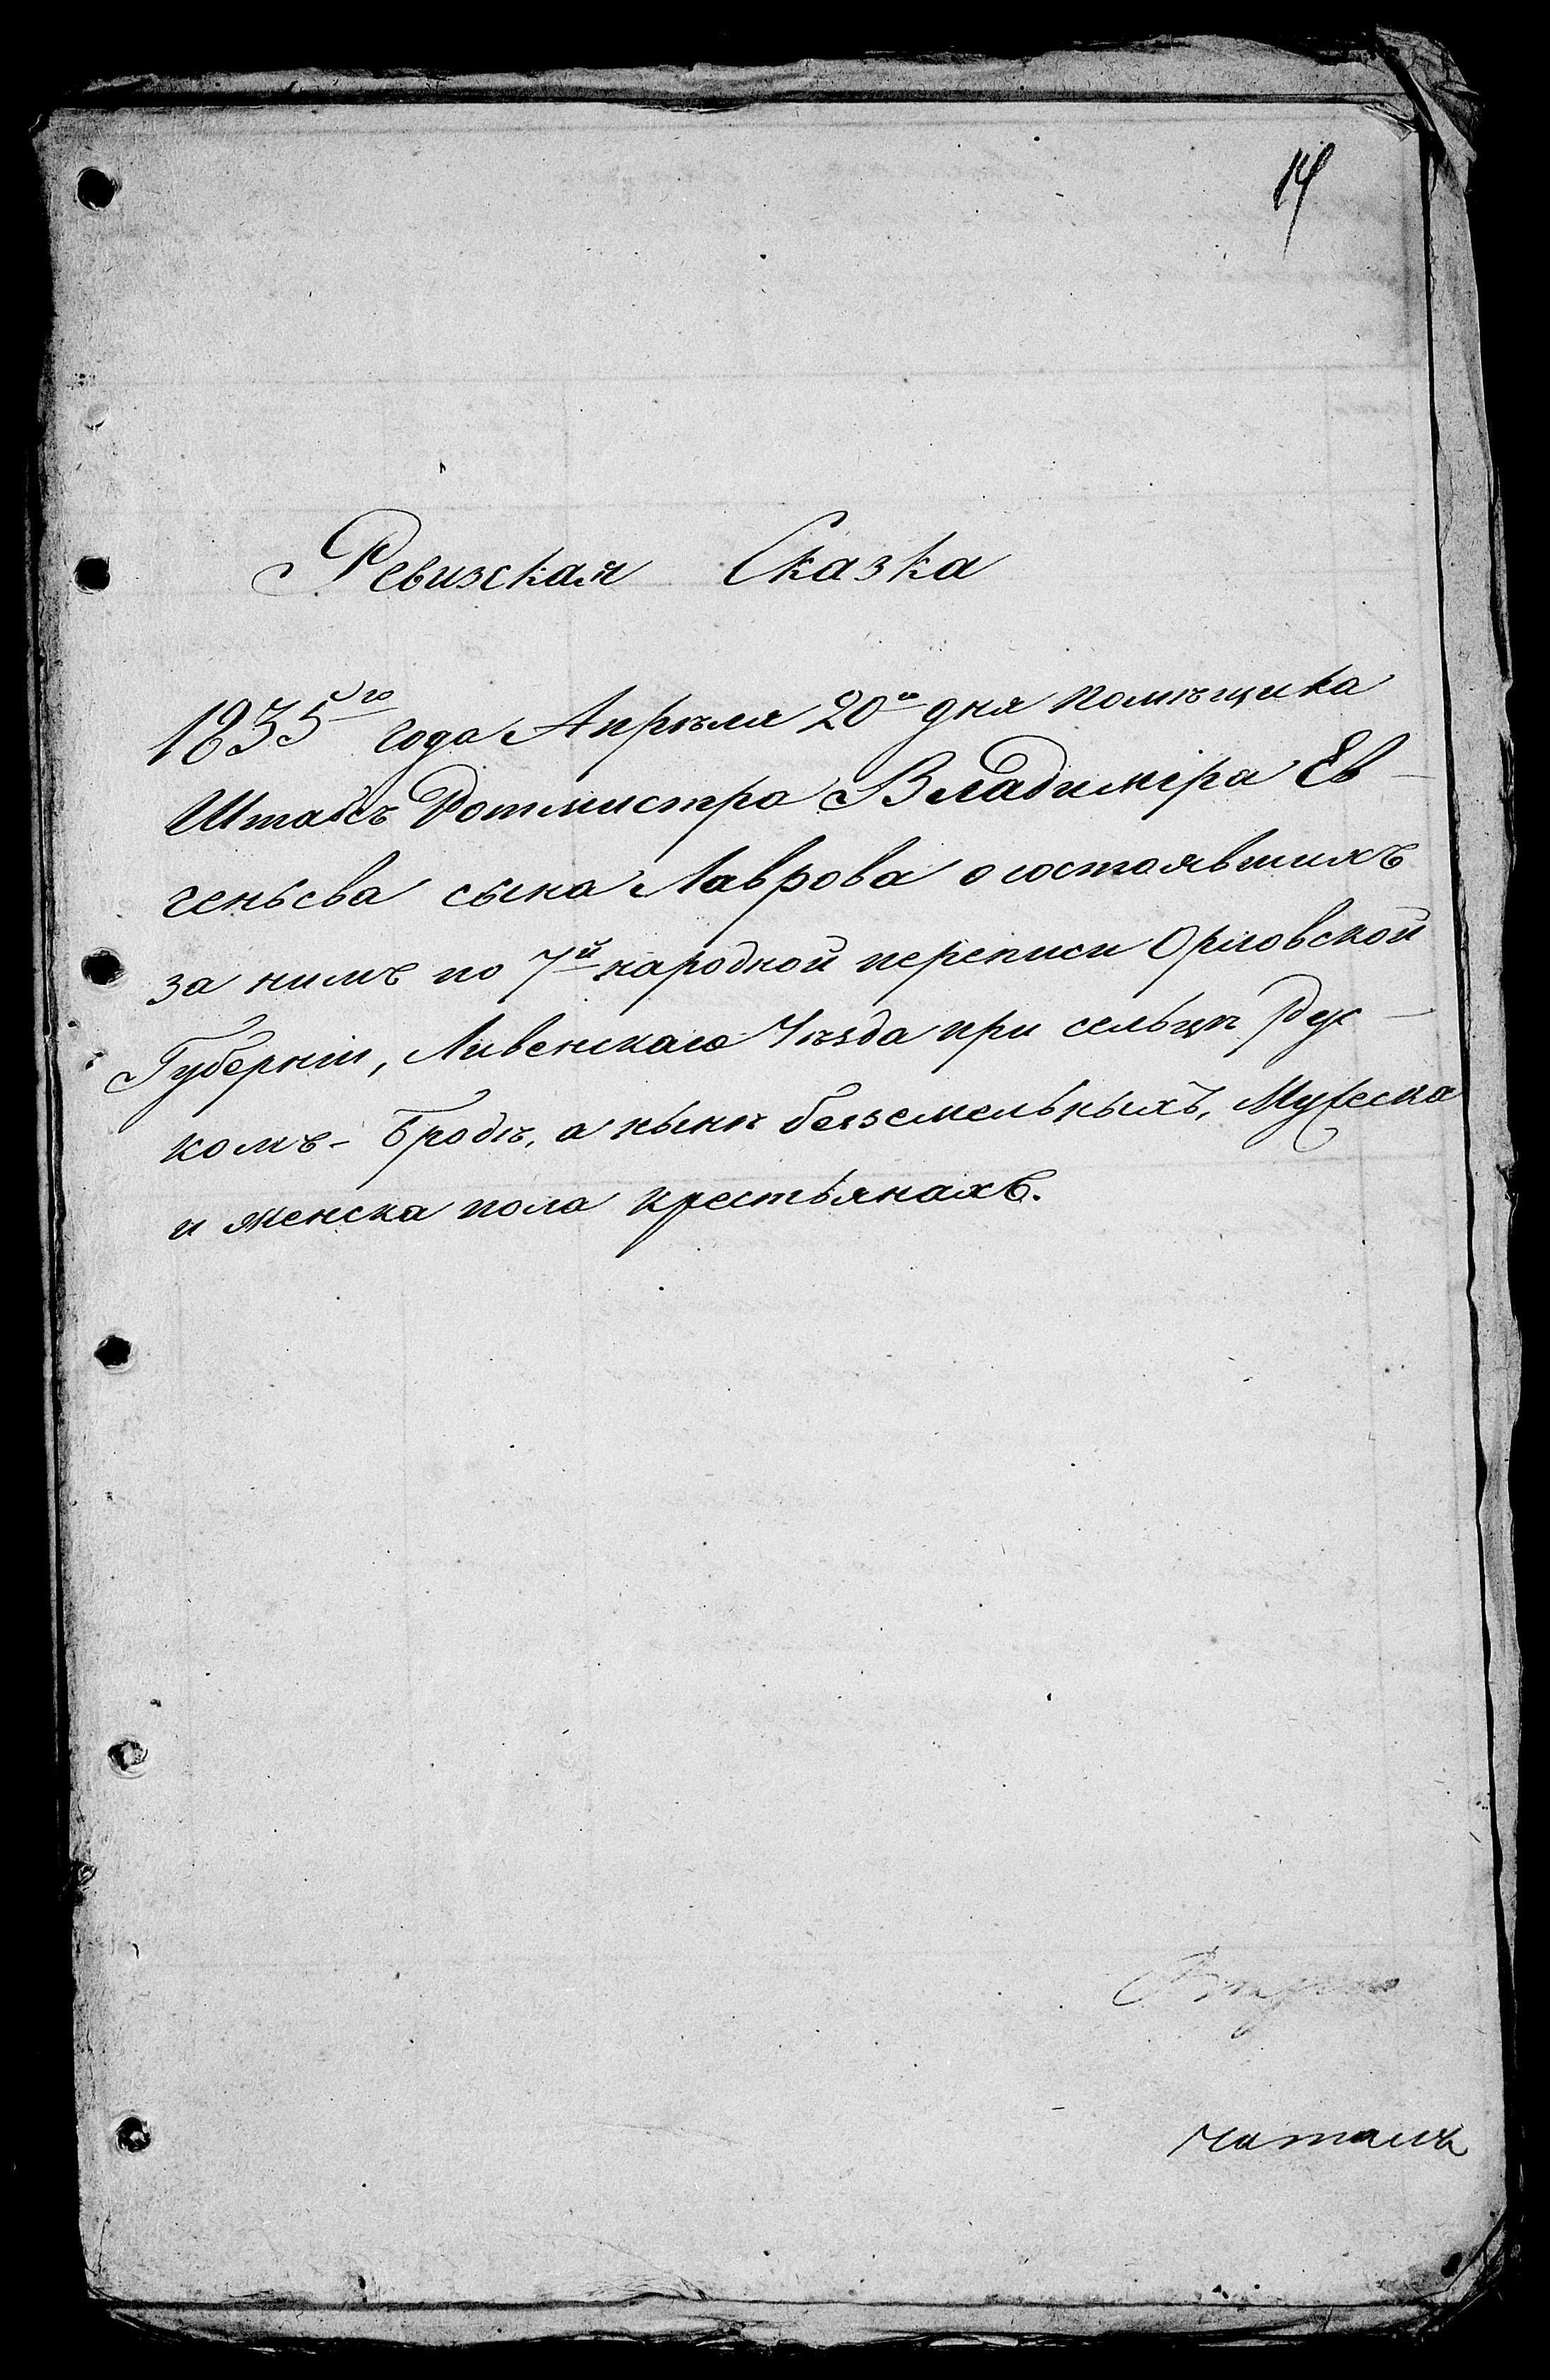 14
Ревизская Сказка
1835го года Апрѣля 20го дня помѣщика
Штабсъ Ротмистра Владиміра Ев-
геньева сына Лаврова о состоявшихъ
за нимъ по 7й народной переписи Орловской
Губерніи, Ливенскаго Уѣзда при сельцѣ Рус-
комъ-Бродѣ, а нынѣ безземельныхъ, Мужеска
и женска пола крестьянахъ.
читалъ